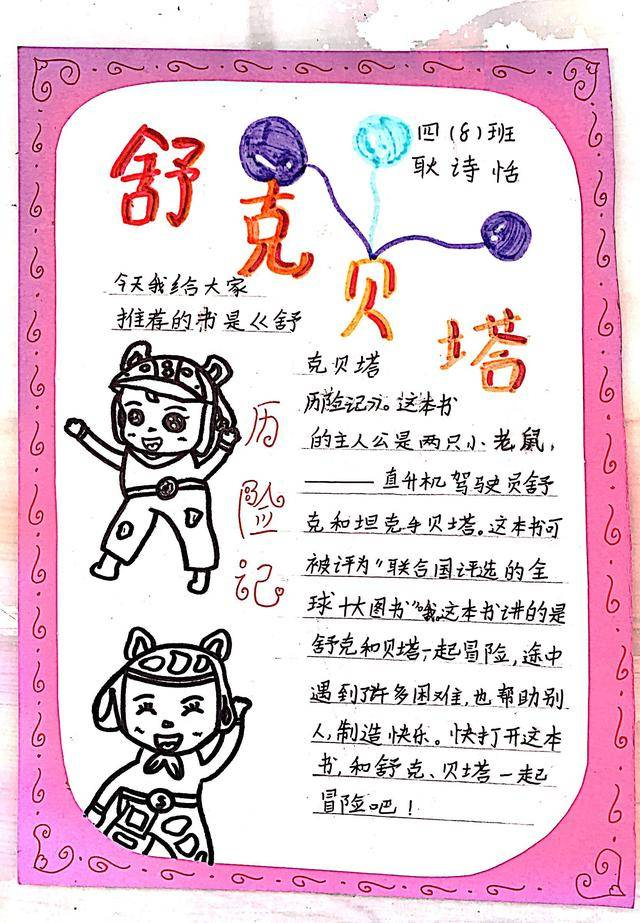 舒克贝塔
历险记
四(8)班
耿诗恬
今天我给大家
推荐的书是《舒
克贝塔
历险记》。这本书
的主人公是两只小老鼠，
——直升机驾驶员舒
克和坦克手贝塔。这本书可
被评为"联合国评选的全
球十大图书"哦。这本书讲的是
舒克和贝塔一起冒险，途中
遇到了许多困难，也帮助别
人，制造快乐。快打开这本
书，和舒克、贝塔一起
冒险吧！